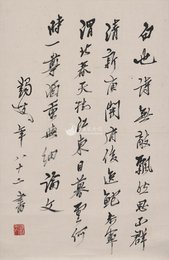 白也詩無敵飄然思不群
清新庾開府俊逸鮑參軍
渭北春天樹江東日暮雲何
時一尊酒重與細論文
年八十二書